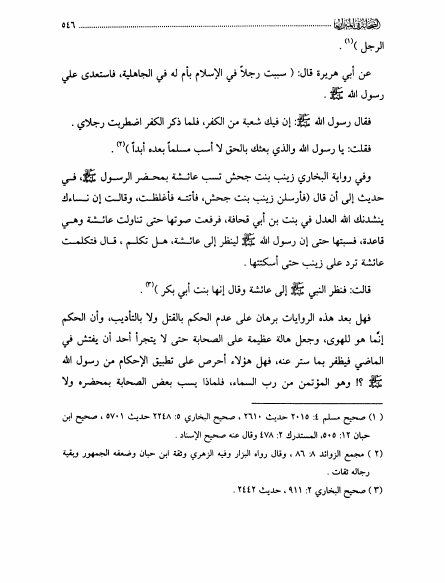 الصحابة في حجمهم الحقيقي ٥٤٦
الرجل )(١) .
عن أبي هريرة قال: ( سببت رجلاً في الإسلام بأم له في الجاهلية، فاستعدى علي
رسول الله ﷺ .
فقال رسول الله ﷺ: إن فيك شعبة من الكفر، فلما ذكر الكفر اضطربت رجلاي .
فقلت: يا رسول الله والذي بعثك بالحق لا أسب مسلماً بعده أبداً )(٢) .
وفي رواية البخاري زينب بنت جحش تسب عائشة بمحضر الرسول ﷺ، فـي
حديث إلى أن قال (فأرسلن زينب بنت جحش، فأتتـه فأغلظت، وقالت إن نساءك
ينشدنك الله العدل في بنت بن أبي قحافة، فرفعت صوتها حتى تناولت عائشة وهي
قاعدة، فسبتها حتى إن رسول الله ﷺ لينظر إلى عائشة، هـل تكلم ، قال فتكلمت
عائشة ترد على زينب حتى أسكتتها .
قالت: فنظر النبي ﷺ إلى عائشة وقال إنها بنت أبي بكر )(٣) .
فهل بعد هذه الروايات برهان على عدم الحكم بالقتل ولا بالتأديب، وأن الحكم
إنّما هو للهوى، وجعل هالة عظيمة على الصحابة حتى لا يتجرأ أحد أن يفتش في
الماضي فيظفر بما ستر عنه، فهل هؤلاء أحرص على تطبيق الإحكام من رسول الله
ﷺ ؟! وهو المؤتمن من رب السماء، فلماذا يسب بعض الصحابة بمحضره ولا
(١) صحيح مسلم ٤: ٢٠١٥ حديث ٢٦١٠ ، صحيح البخاري ٥: ٢٢٤٨ حديث ٥٧٠١ ، صحيح ابن
حبان ١٢: ٥٠٥، المستدرك ٢: ٤٧٨ وقال عنه صحيح الإسناد .
(٢) مجمع الزوائد ٨: ٨٦ ، وقال رواه البزار وفيه الزهري وثقة ابن حبان وضعفه الجمهور وبقية
رجاله ثقات .
(٣) صحيح البخاري ٢: ٩١١ ، حديث ٢٤٤٢ .